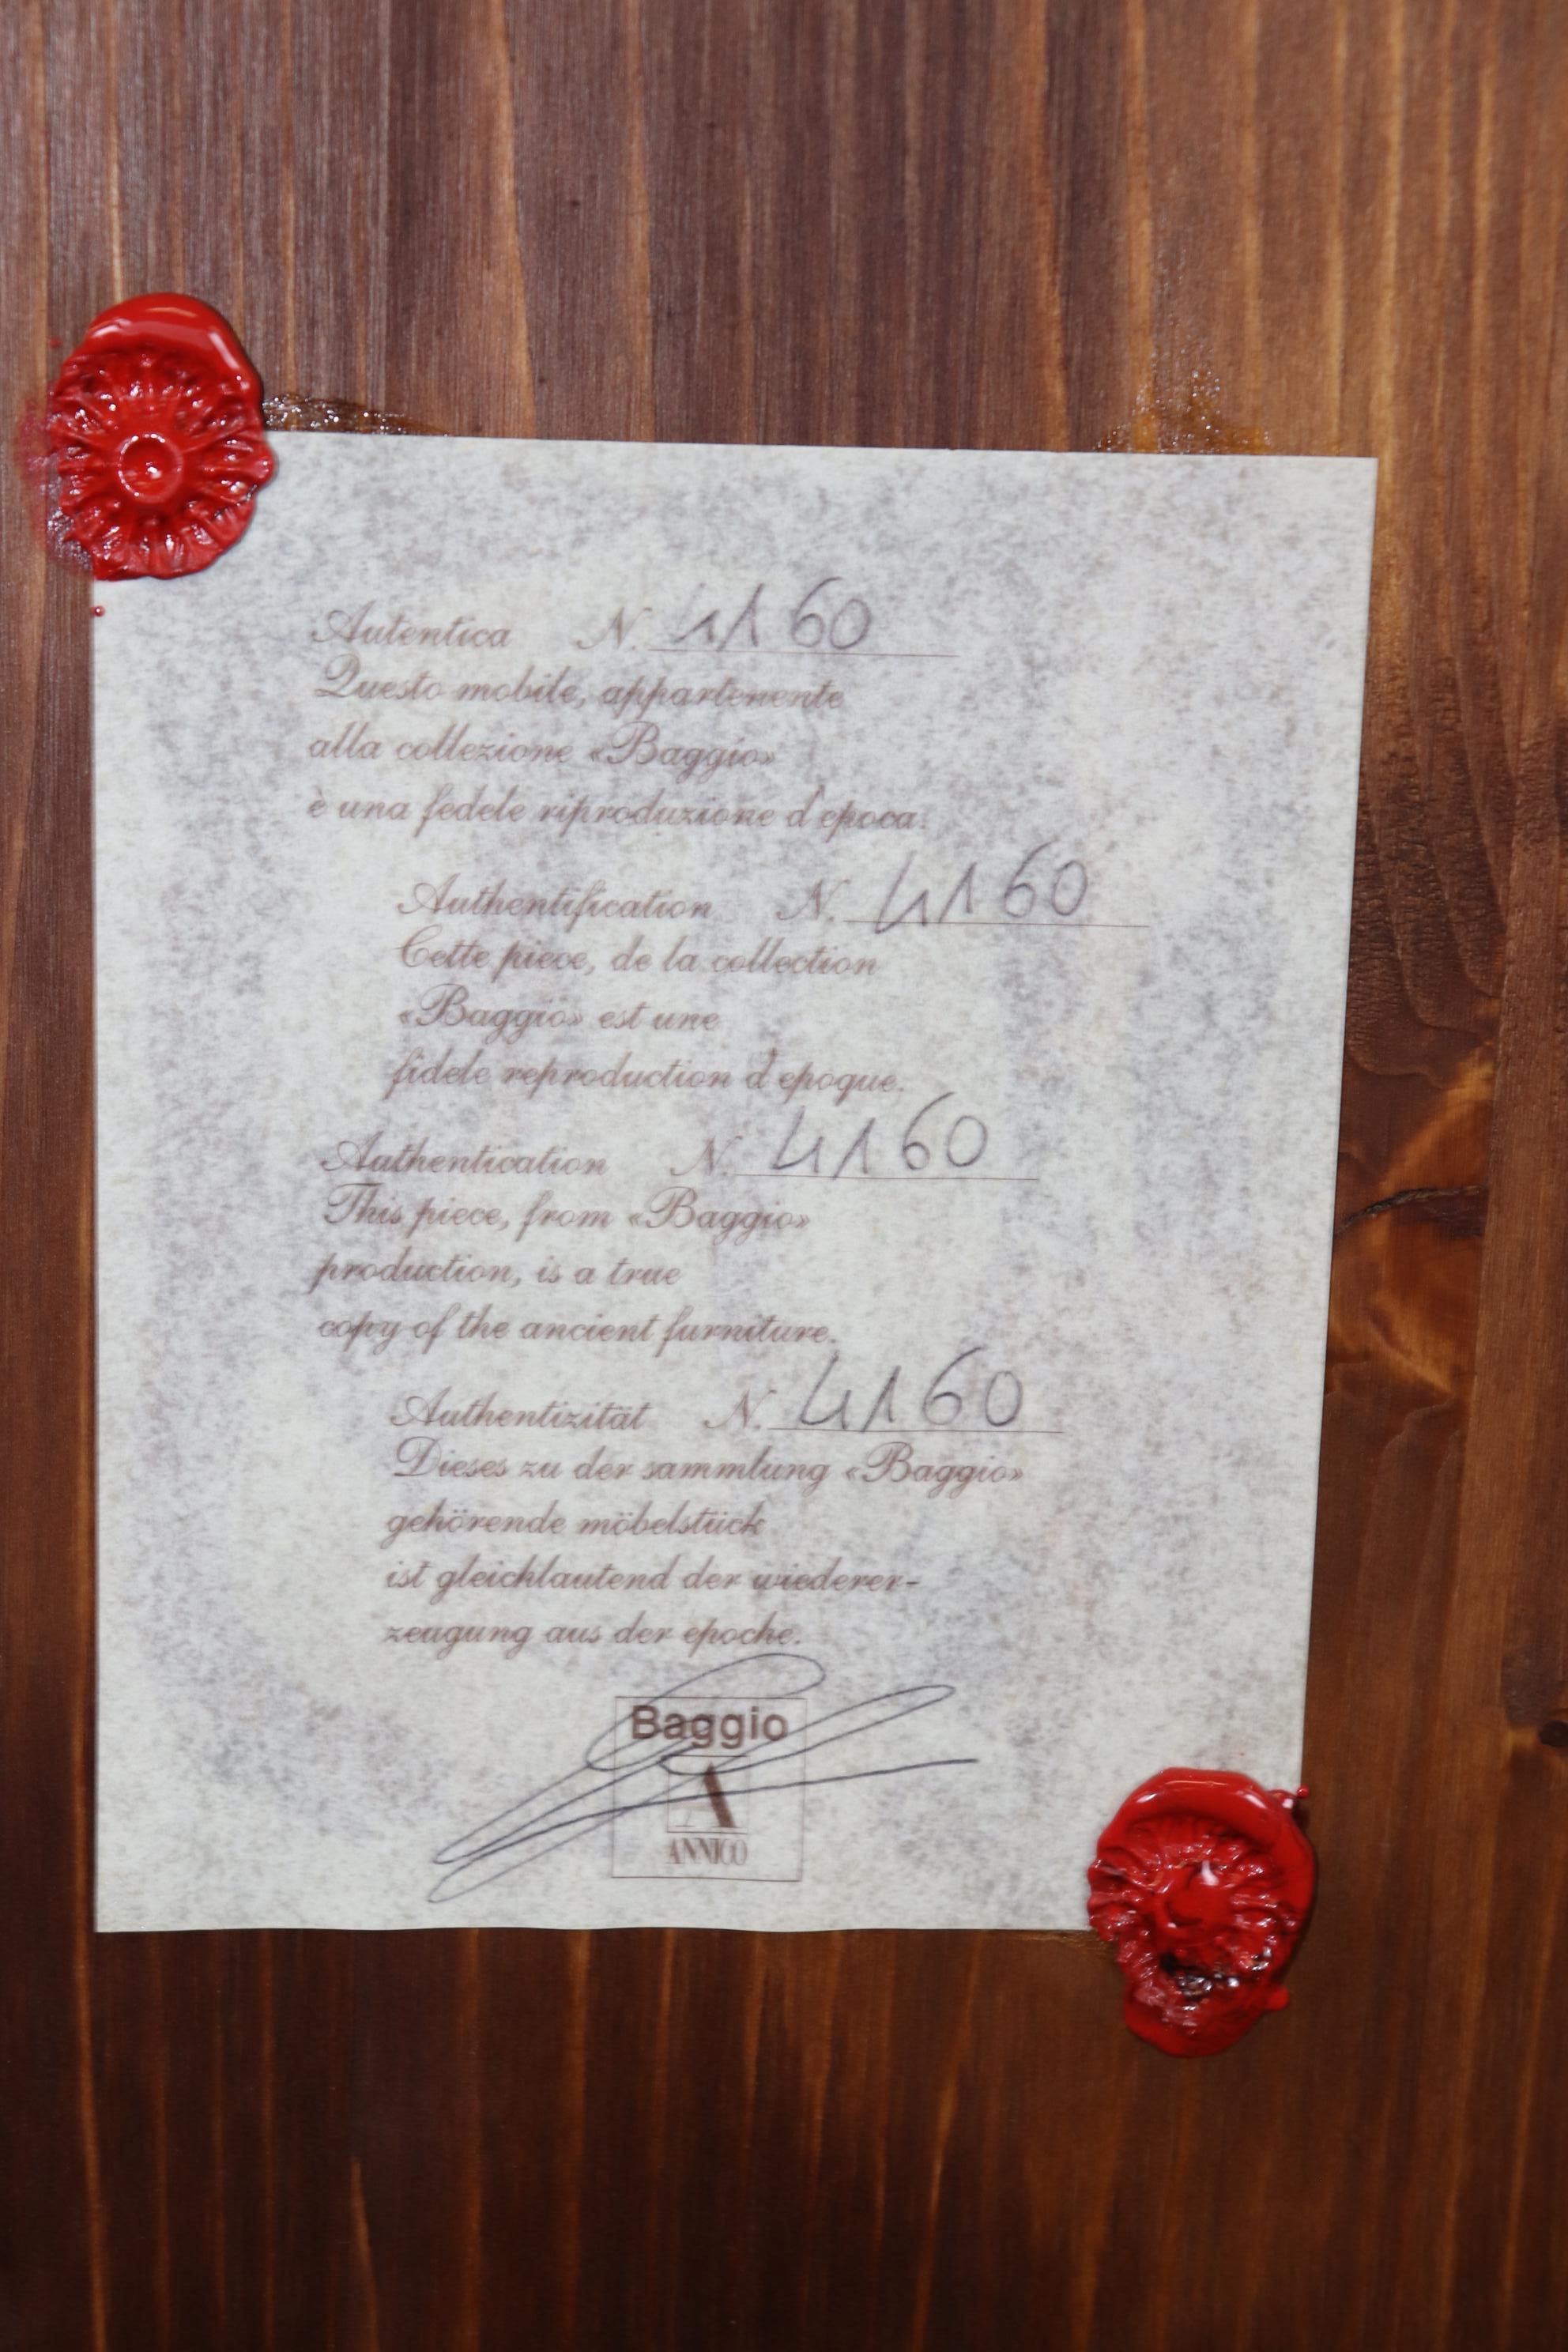 Autentica N. 4160
Questo mobile, appartenente
alla collezione «Baggio»
è una fedele riproduzione d'epoca.
Authentification N. 4160
Cette piece, de la collection
«Baggio» est une
fidele reproduction d'epoque.
Authentication N. 4160
This piece, from «Baggio»
production, is a true
copy of the ancient furniture.
Authentizität N. 4160
Dieses zu der sammlung «Baggio»
gehörende möbelstück
ist gleichlautend der wiederer-
zeugung aus der epoche.
Baggio
A
ANNICO